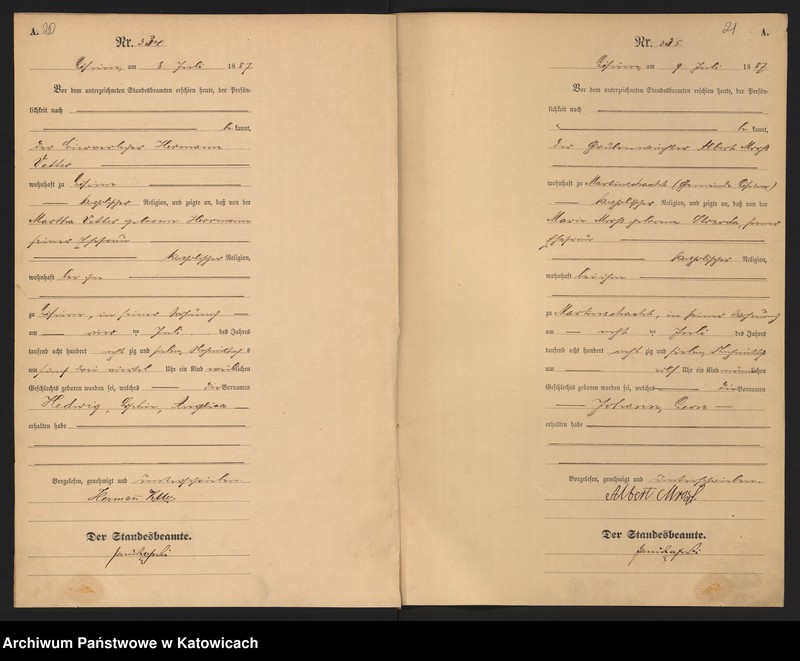 A. 20
Nr. 334
am 8 Juli 1887
Vor dem unterzeichneten Standesbeamten erschien heute, der Persön-
lichkeit nach
be kannt,
der Hermann
Vetter
wohnhaft zu
katholischer Religion, und zeigte an, daß von der
Martha Vetter geborene Herrmann
seiner Ehefrau
katholischer Religion,
wohnhaft bei ihm
zu in seiner Wohnung
am vier ten Juli des Jahres
tausend acht hundert acht zig und sieben Nachmittags
um fünf drei viertel Uhr ein Kind weiblichen
Geschlechts geboren worden sei, welches die Vornamen
Hedwig, Sophie, Angelica
erhalten habe
Vorgelesen, genehmigt und unterschrieben
Herman Vetter
Der Standesbeamte.
21 A.
Nr. 335
am 9 Juli 1887
Vor dem unterzeichneten Standesbeamten erschien heute, der Persön-
lichkeit nach
be kannt,
der Grubenwächter Albert
wohnhaft zu Martinschacht (Gemeinde
katholischer Religion, und zeigte an, daß von der
Marie geborene seiner
Ehefrau
katholischer Religion,
wohnhaft bei ihm
zu Martinschacht, in seiner Wohnung
am acht ten Juli des Jahres
tausend acht hundert acht zig und sieben Nachmittags
um elf Uhr ein Kind männlichen
Geschlechts geboren worden sei, welches die Vornamen
Johann, Leon
erhalten habe
Vorgelesen, genehmigt und unterschrieben
Albert
Der Standesbeamte.
Archiwum Państwowe w Katowicach